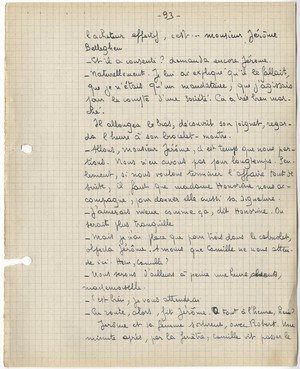 - 93 -
l'acheteur effectif, c'est... monsieur Jérôme
Belleghem
- Et il a consenti ? demanda encore Jérôme.
- Naturellement. Je lui ai expliqué qu'il le fallait,
que je n'étais qu'un mandataire, que j'agissais
pour le compte d'une société. Ça a très bien mar-
ché.
Il allongea le bras, découvrit son poignet, regar-
da l'heure à son bracelet-montre.
- Allons, monsieur Jérôme, il est temps que nous par-
tions. Nous n'en avons pas pour longtemps. Seu-
lement, si nous voulons terminer l'affaire tout de
suite, il faut que madame Honorine nous ac-
compagne, pour donner elle aussi sa signature.
- J'aimerais mieux comme ça, dit Honorine. On
serait plus tranquille.
- Mais je n'ai place que pour trois dans le cabriolet,
objecta Jérôme. À moins que Camille ne nous atten-
de ici. Hein, Camille ?
- Nous serons d'ailleurs à peine une heure absents,
mademoiselle.
- C'est bien, je vous attendrai.
- En route, alors, fit Jérôme. À tout à l'heure, hein !
Jérôme et sa femme sortirent, avec Robert. Une
minute après, par la fenêtre, Camille vit passer le